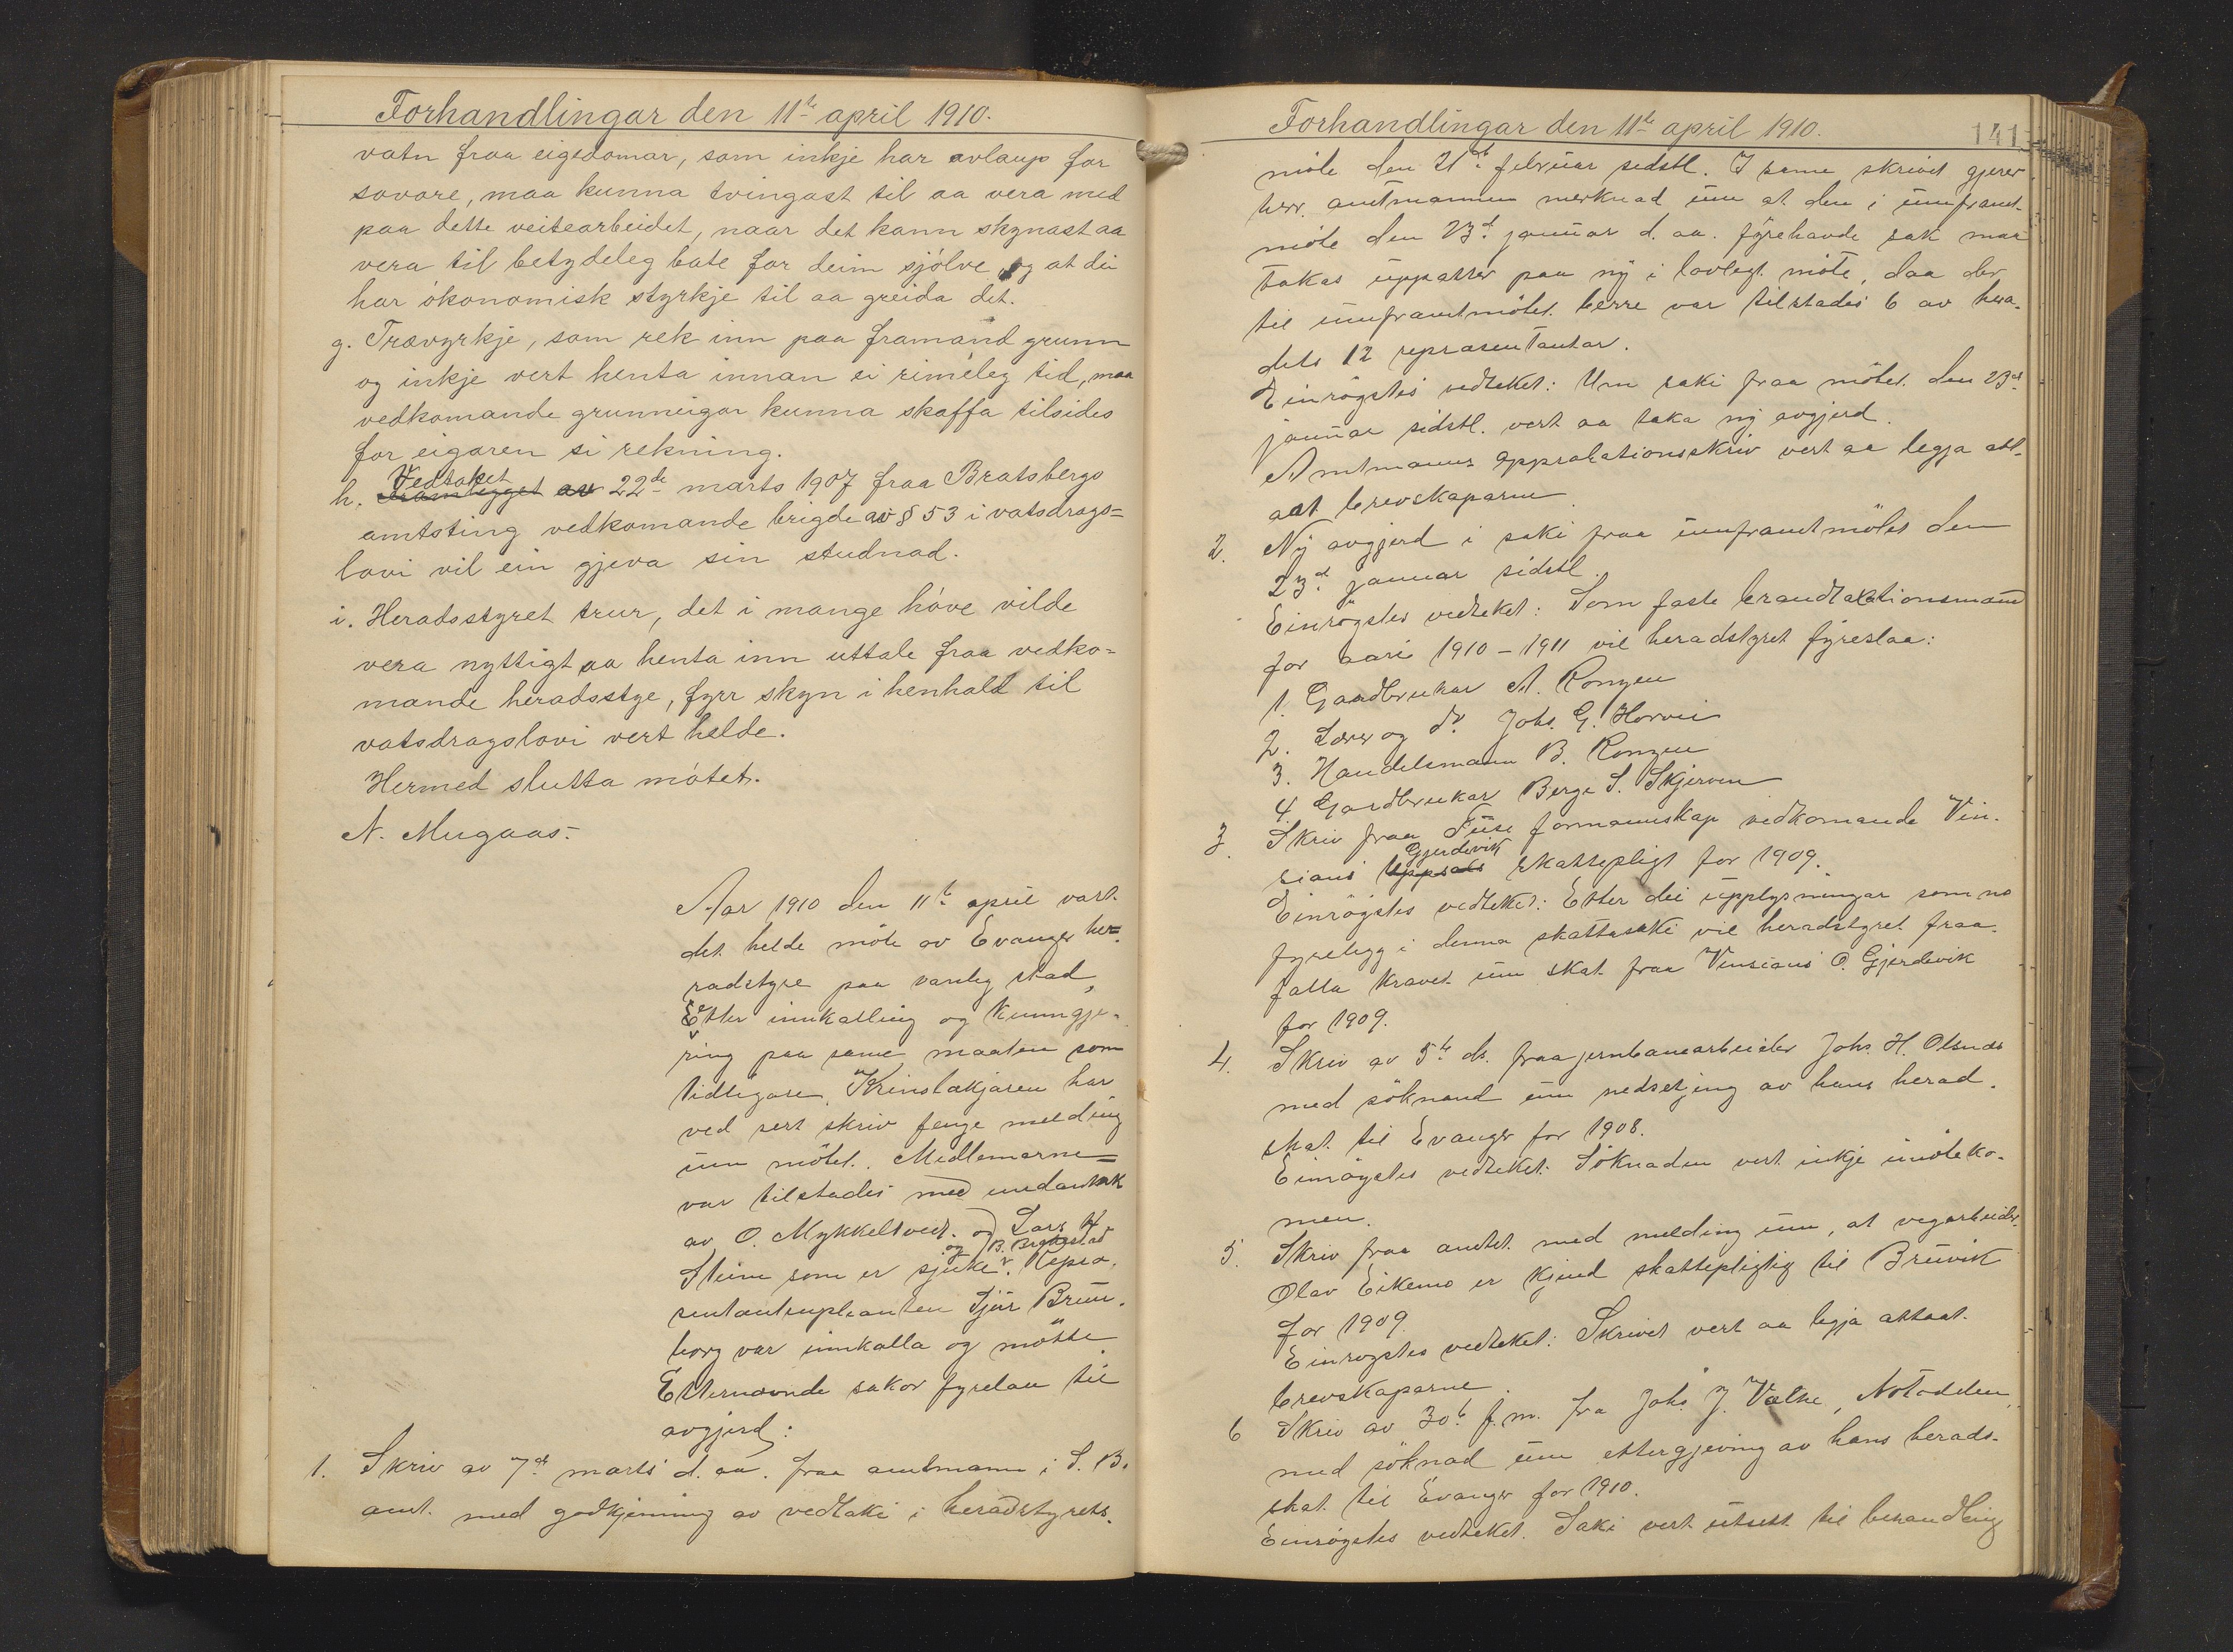 Forhandlingar den 11te april 1910.
vatn fraa eigedomar, som inkje har avlaup for
sovore, maa kunna tvingast til aa vera med
paa dette veitearbeidet, naar det kann skynast aa
vera til betydeleg bate for deim sjölve og at dei
har ökonomisk styrkje til aa greida det.
g. Trævyrkje, som rek inn paa framand grunn
og inkje vert henta innan ei rimeleg tid, maa
vedkomande grunneigar kunna skaffa tilsides
for eigaren si rekning.
Vedtaket
h. Framlegget av 22de marts 1907 fraa Bratsbergs
amtsting vedkomande brigde av § 53 i vatsdrags=
lovi vil ein gjeva sin studnad.
i. Heradsstyret trur, det i mange höve vilde
vera nyttigt aa henta inn uttale fraa vedko=
mande heradsstye, fyrr skyn i henhald til
vatsdragslovi vert helde.
Hermed slutta mötet.
N. Mugaas.
Aar 1910 den 11te april vart
det helde möte av Evanger he=
radstyre paa vanleg stad,
Etter innkalling og kunngje-
ring paa same maaten som
tidligare. Krinslækjaren har
ved sert skriv fenge melding
um mötet. Medlemarne
var tilstades med undantak
av O. Mykkeltvedt. og Lars H.
og B. Brynestad
Steine som er sjuke. Repræ-
sentantsupleanten Sjur Brun-
borg var innkalla og mötte.
Etternævnde sakor fyrelau til
avgjerd:
1. Skriv av 7de marts d. aa. fraa amtmann i S. B.
amt. med godkjenning av vedtaki i heradstyrets
Forhandlingar den 11te april 1910.
141
möte den 21de februar sidstl. I same skrivet gjerer
herr. amtmannen merknad um at den i umframt-
möte den 23de januar d. aa. fyrehavde sak maa
takas uppatter paa ny i lovlegt möte, daa der
til umframtmötet berre var tilstades 6 av hera-
dets 12 repræsentantar.
Einrögstes vedteket: Um saki fraa mötet den 23de
januar sidstl. vert aa taka ny avgjerd.
Amtmanns approbationsskriv vert aa legja att-
aat brevskaparne.
2. Ny avgjerd i saki fraa umframtmötet den
23de januar sidstl.
Einrögstes vedteket: Som faste brandtaxationsmænd
for aari 1910 - 1911 vil heradstyret fyreslaa:
1. Gaardbrukar A. Rongen
2. Lærer og do. Johs. G. Horvei
3. Handelsmann B. Rongen
4. Gardbrukar Berge S. Skjerven
3. Skriv fraa Fuse formannskap vedkomande Vin-
Gjerdevik
sians Uppsals skattepligt for 1909.
Einrögstes vedteket: Etter dei upplysningar som no
fyrelegg i denna skattesaki vil heradstyret fraa-
falla kravet um skat fraa Vinsians O. Gjerdevik
for 1909.
4. Skriv av 5te ds. fraa jernbanearbeider Johs. H. Olsnes
med söknand um nedsetjing av hans herad-
skat til Evanger for 1908.
Einrögstes vedteket: Söknaden vert inkje imöteko-
men.
5. Skriv fraa amtet med melding um, at vegarbeider
Olav Eikemo er kjend skattepligtig til Bruvik
for 1909.
Einrogstes vedteket: Skrivet vert aa legja attaat
brevskaparne.
6 Skriv av 30te f.m. fra Johs J. Vatne, Notodden,
med söknad um ettergjeving av hans herads-
skat til Evanger for 1910.
Einrögstes vedteket. Saki vert utsett til behandling